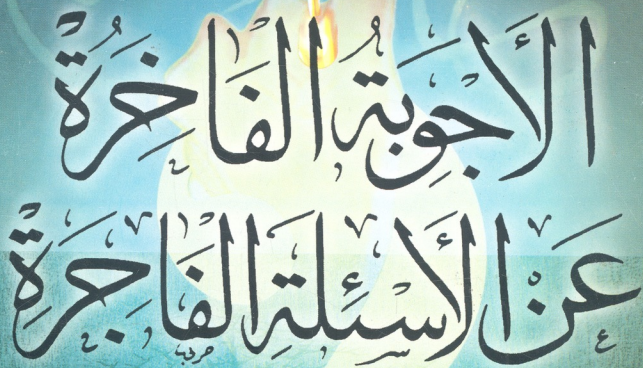 الأَجْوِبَةُ الفَاخِرَةْ
عَنِ الأَسْئِلَةِ الفَاجِرَةْ